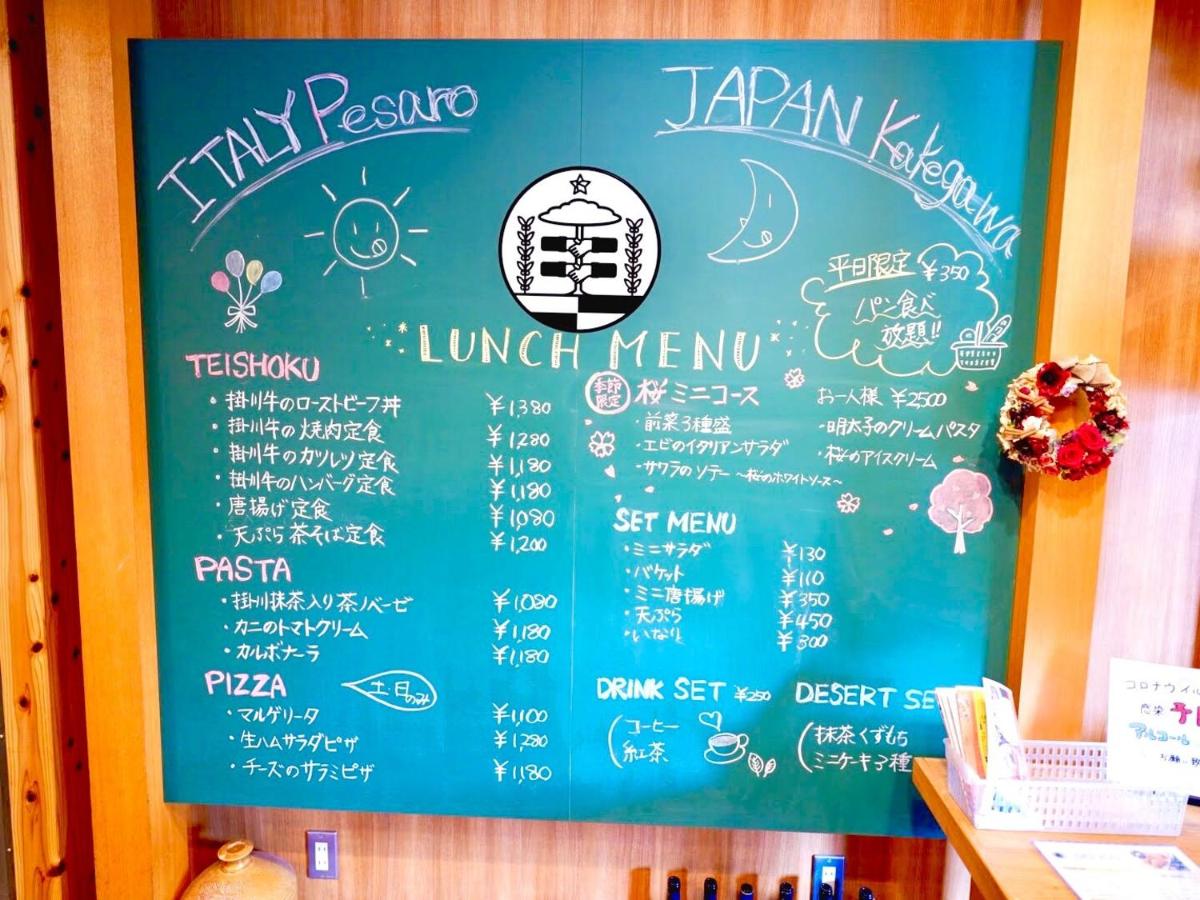 ITALY Pesaro
JAPAN Kakegawa
平日限定 ¥350
パン食べ
放題!!
LUNCH MENU
TEISHOKU
・掛川牛のローストビーフ丼 ¥1,380
・掛川牛の焼肉定食 ¥1,280
・掛川牛のカツレツ定食 ¥1,180
・掛川牛のハンバーグ定食 ¥1,180
・唐揚げ定食 ¥1,080
・天ぷら茶そば定食 ¥1,200
PASTA
・掛川抹茶入り茶ノベーゼ ¥1,080
・カニのトマトクリーム ¥1,180
・カルボナーラ ¥1,180
PIZZA
土・日のみ
・マルゲリータ ¥1,100
・生ハムサラダピザ ¥1,280
・チーズのサラミピザ ¥1,180
季節
限定
桜ミニコース お一人様 ¥2,500
・前菜3種盛
・エビのイタリアンサラダ
・サワラのソテー ~桜のホワイトソース~
・明太子のクリームパスタ
・桜のアイスクリーム
SET MENU
・ミニサラダ ¥130
・バケット ¥110
・ミニ唐揚げ ¥350
・天ぷら ¥450
・いなり ¥300
DRINK SET ¥250
コーヒー
紅茶
DESERT SE
抹茶くずもち
ミニケーキ3種
コロナウイル
感染
アルコール